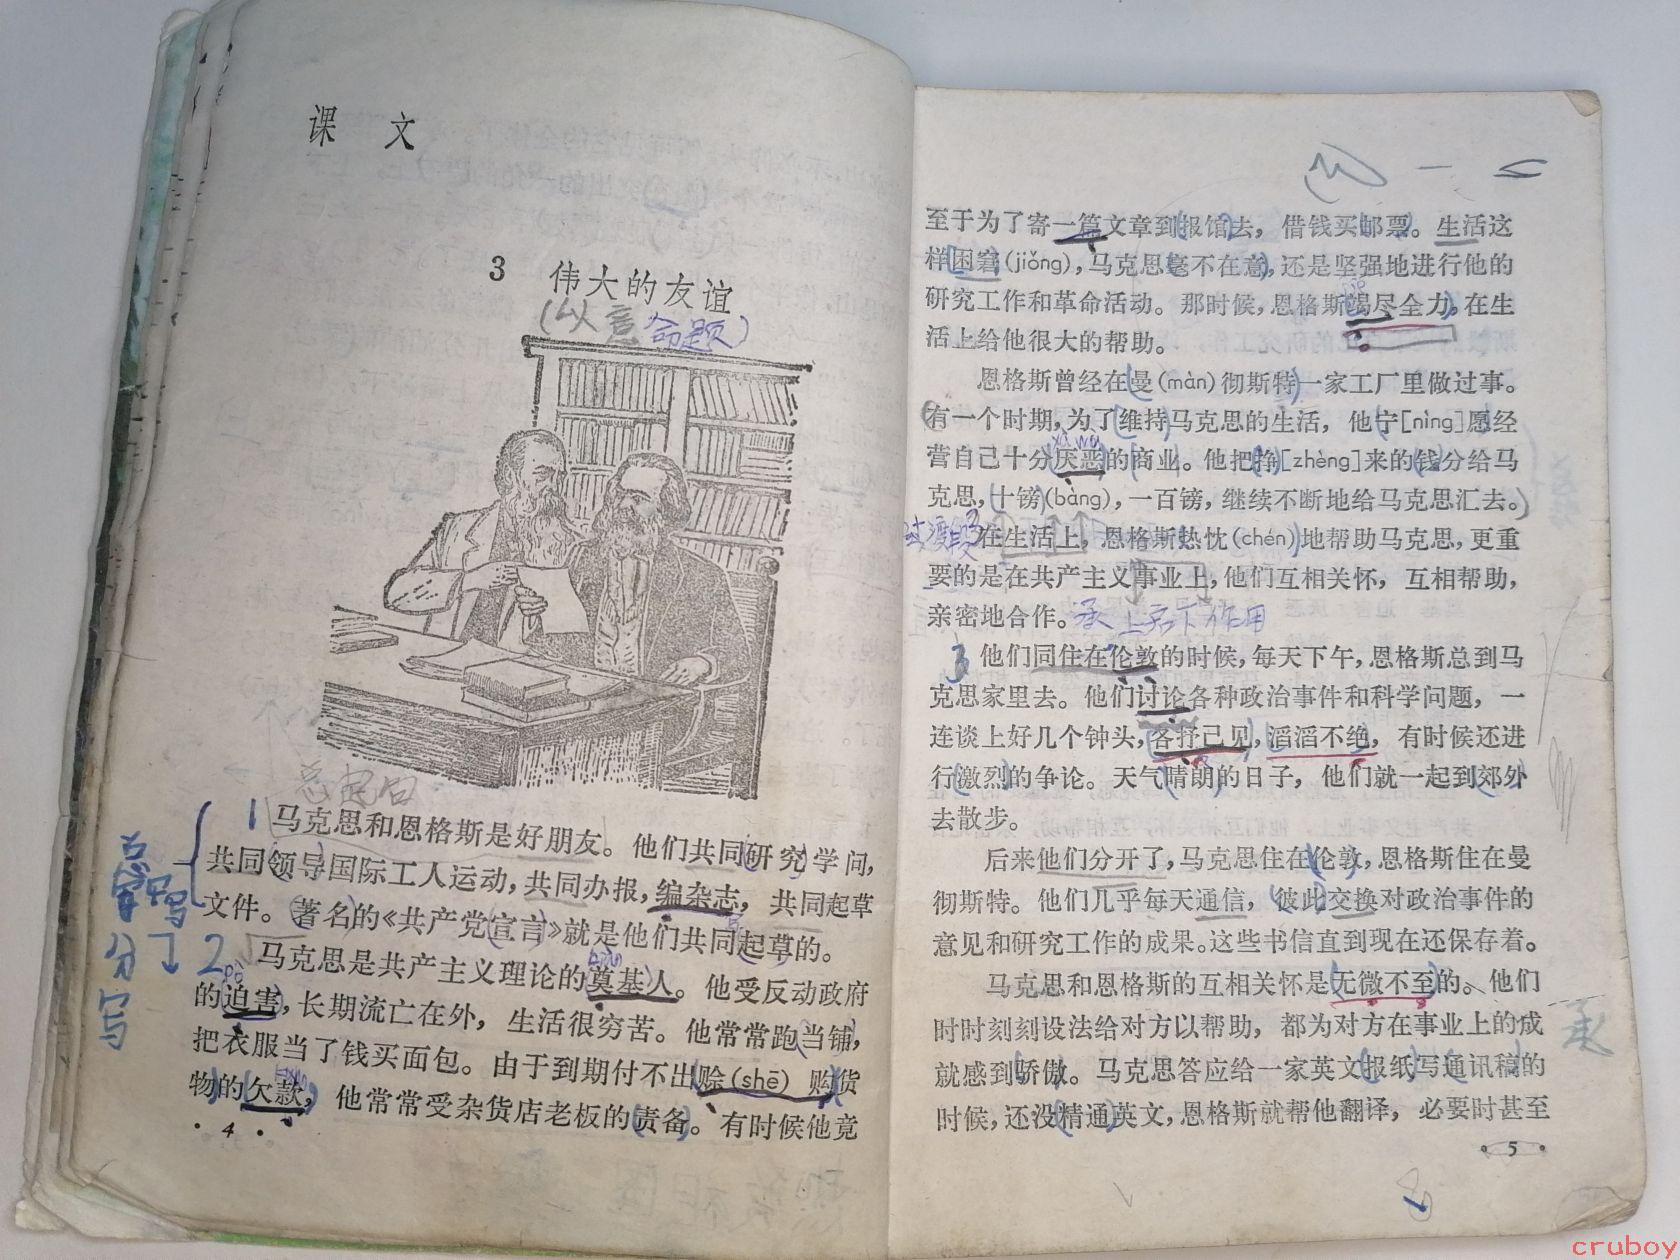 课 文
3 伟大的友谊
(以意命题)
总起句
1 马克思和恩格斯是好朋友。他们共同研究学问,
共同领导国际工人运动,共同办报,编杂志,共同起草
文件。著名的《共产党宣言》就是他们共同起草的。
2 马克思是共产主义理论的奠基人。他受反动政府
的迫害,长期流亡在外,生活很穷苦。他常常跑当铺,
把衣服当了钱买面包。由于到期付不出赊(shē)购货
物的欠款,他常常受杂货店老板的责备。有时候他竟
·4·
总
分
写
至于为了寄一篇文章到报馆去,借钱买邮票。生活这
样困窘(jiǒng),马克思毫不在意,还是坚强地进行他的
研究工作和革命活动。那时候,恩格斯竭尽全力,在生
活上给他很大的帮助。
恩格斯曾经在曼(màn)彻斯特一家工厂里做过事。
有一个时期,为了维持马克思的生活,他宁[nìng]愿经
营自己十分厌恶的商业。他把挣[zhèng]来的钱分给马
克思,十镑(bàng),一百镑,继续不断地给马克思汇去。
过渡段 在生活上,恩格斯热忱(chén)地帮助马克思,更重
要的是在共产主义事业上,他们互相关怀,互相帮助,
亲密地合作。承上启下作用
3 他们同住在伦敦的时候,每天下午,恩格斯总到马
克思家里去。他们讨论各种政治事件和科学问题,一
连谈上好几个钟头,各抒己见,滔滔不绝,有时候还进
行激烈的争论。天气晴朗的日子,他们就一起到郊外
去散步。
后来他们分开了,马克思住在伦敦,恩格斯住在曼
彻斯特。他们几乎每天通信,彼此交换对政治事件的
意见和研究工作的成果。这些书信直到现在还保存着。
马克思和恩格斯的互相关怀是无微不至的。他们
时时刻刻设法给对方以帮助,都为对方在事业上的成
就感到骄傲。马克思答应给一家英文报纸写通讯稿的
时候,还没精通英文,恩格斯就帮他翻译,必要时甚至
承
·5·
cruboy